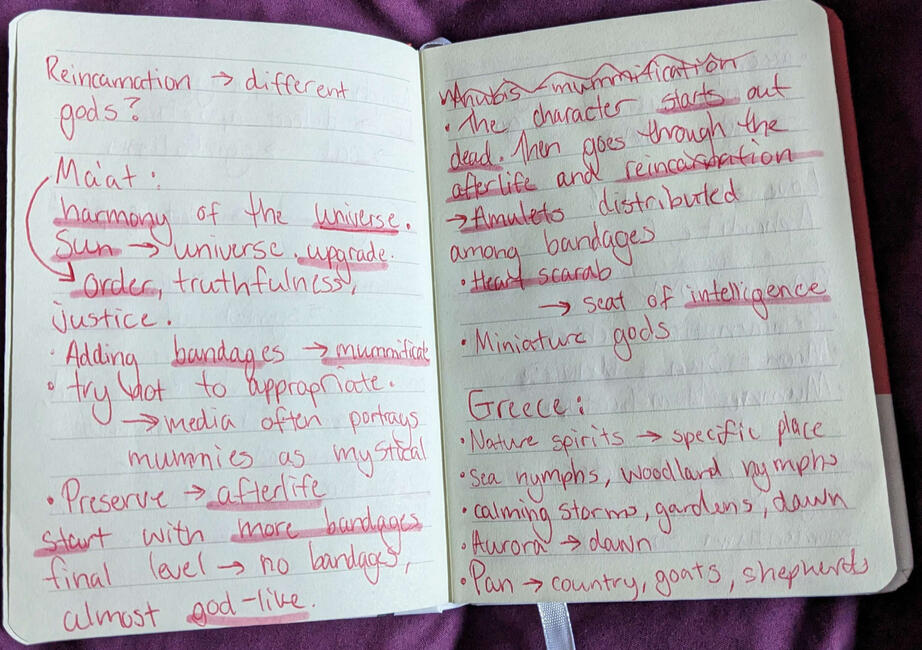 Reincarnation → different
gods?
Ma'at:
harmony of the universe.
Sun → universe. upgrade.
order, truthfulness,
justice.
· Adding bandages → mummificate
• try Not to appropriate.
→ media often portrays
mummies as mystical
• Preserve → afterlife
start with more bandages
final level → no bandages,
almost god-like.
Anubis - mummification
• The character starts out
dead. Then goes through the
afterlife and reincarnation
→ Amulets distributed
among bandages
• Heart scarab
→ seat of intelligence
• Miniature gods
Greece:
• Nature spirits → specific place
• Sea nymphs, woodland nymphs
• calming storms, gardens, dawn
• Aurora → dawn
• Pan → country, goats, shepherds